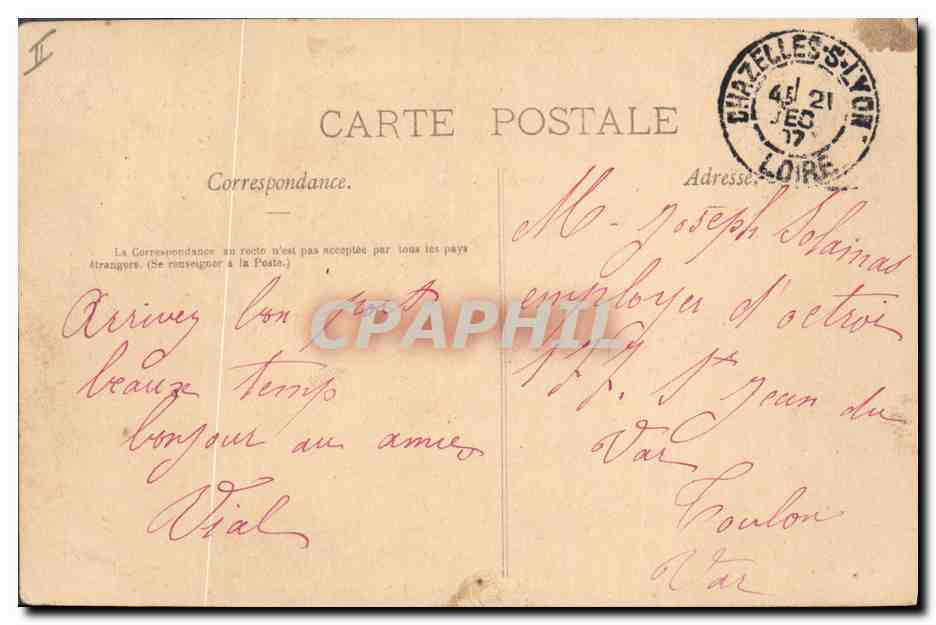 II
CHAZELLES-S-LYON
21
DEC
LOIRE
CARTE POSTALE
Correspondance.
Adresse.
La Correspondance au recto n'est pas acceptée par tous les pays
étrangers. (Se renseigner à la Poste.)
M- Joseph Solamas
employer d'octroi
St Jean du
Var
Toulon
Var
Arrivez bon port
beaux temp
bonjour au amies
Vial
CPAPHIL